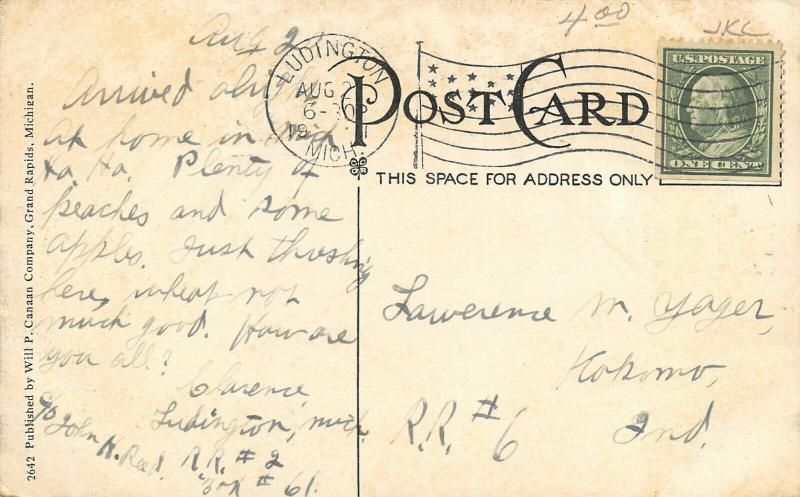 4 00
JKC
Aug 2
LUDINGTON
AUG 2
6-30P
MICH.
POST CARD
THIS SPACE FOR ADDRESS ONLY
U.S. POSTAGE
ONE CENT
Arrived alright
at home in Mich
Ha, Ha. Plenty of
peaches and some
apples. Just threshing
here, wheat not
much good. How are
you all?
Clarence,
Ludington, Mich.
c/o John H. Reed. R.R. # 2
Box # 61.
Lawerence M. Yager,
Kokomo,
R.R. # 6 Ind.
2642 Published by Will P. Canaan Company, Grand Rapids, Michigan.